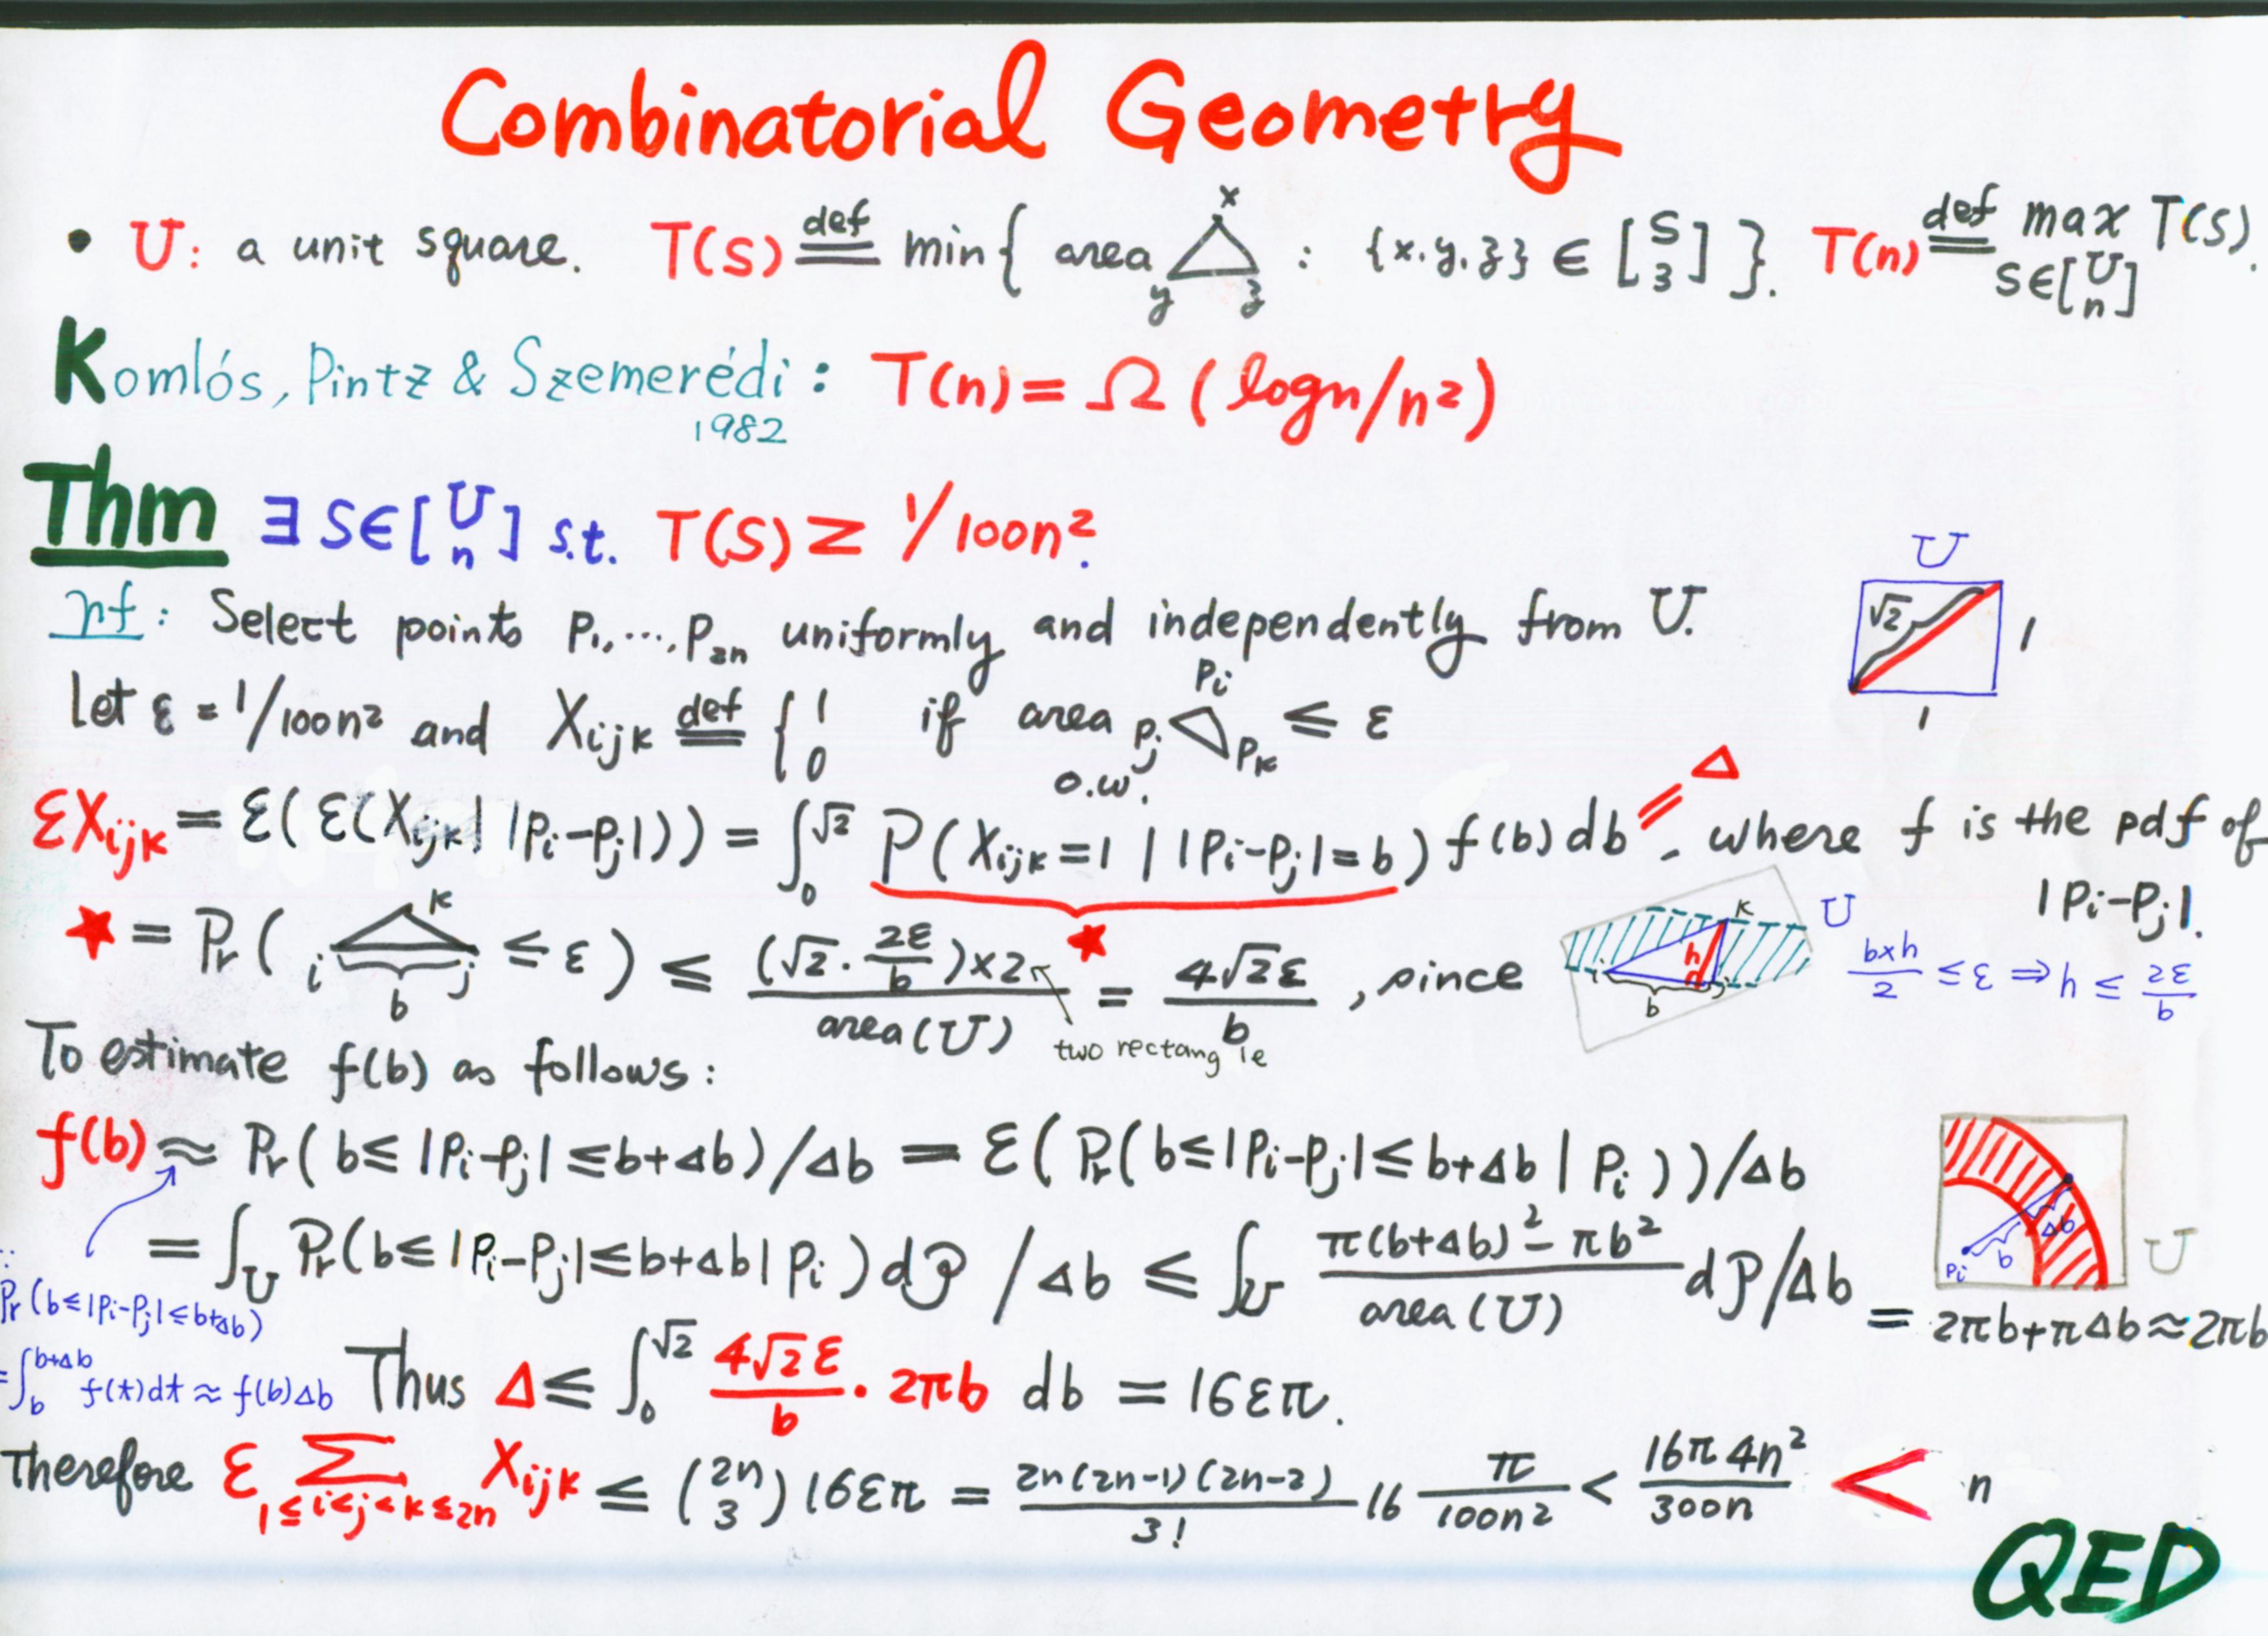 Combinatorial Geometry
• U: a unit square. T(S) def= min{ area △ x y z : {x,y,z} ∈ [S 3] }. T(n) def= max S∈[U n] T(S).
Komlós, Pintz & Szemerédi: T(n) = Ω(logn/n²)
1982
Thm ∃ S∈[U n] s.t. T(S) ≥ 1/100n².
U
√2
1
1
pf: Select points P₁,…,P₂ₙ uniformly and independently from U.
Let ε = 1/100n² and Xijk def= { 1 if area Pi Pj △ Pk ≤ ε
0 o.w.
εXijk = ε(ε(Xijk| |Pi-Pj|)) = ∫₀^√2 P(Xijk=1 | |Pi-Pj|=b) f(b)db = △, where f is the pdf of |Pi-Pj|.
★ = Pr( i △ j k b ≤ ε ) ≤ (√2 · 2ε/b)×2 / area(U) ★ = 4√2ε/b, since
two rectangle
k U h i j b
b×h/2 ≤ ε ⇒ h ≤ 2ε/b
To estimate f(b) as follows:
f(b) ≈ Pr(b≤|Pi-Pj|≤b+Δb)/Δb = ε(Pr(b≤|Pi-Pj|≤b+Δb | Pi))/Δb
= ∫U Pr(b≤|Pi-Pj|≤b+Δb | Pi)dP /Δb ≤ ∫U π(b+Δb)²-πb² / area(U) dP/Δb = 2πb+πΔb≈2πb
Pi b Δb U
∵
Pr(b≤|Pi-Pj|≤b+Δb)
= ∫b^b+Δb f(t)dt ≈ f(b)Δb
Thus Δ ≤ ∫₀^√2 4√2ε/b · 2πb db = 16επ.
Therefore ε Σ 1≤i<j<k≤2n Xijk ≤ (2n 3)16επ = 2n(2n-1)(2n-2)/3! 16 π/100n² < 16π4n²/300n < n
QED